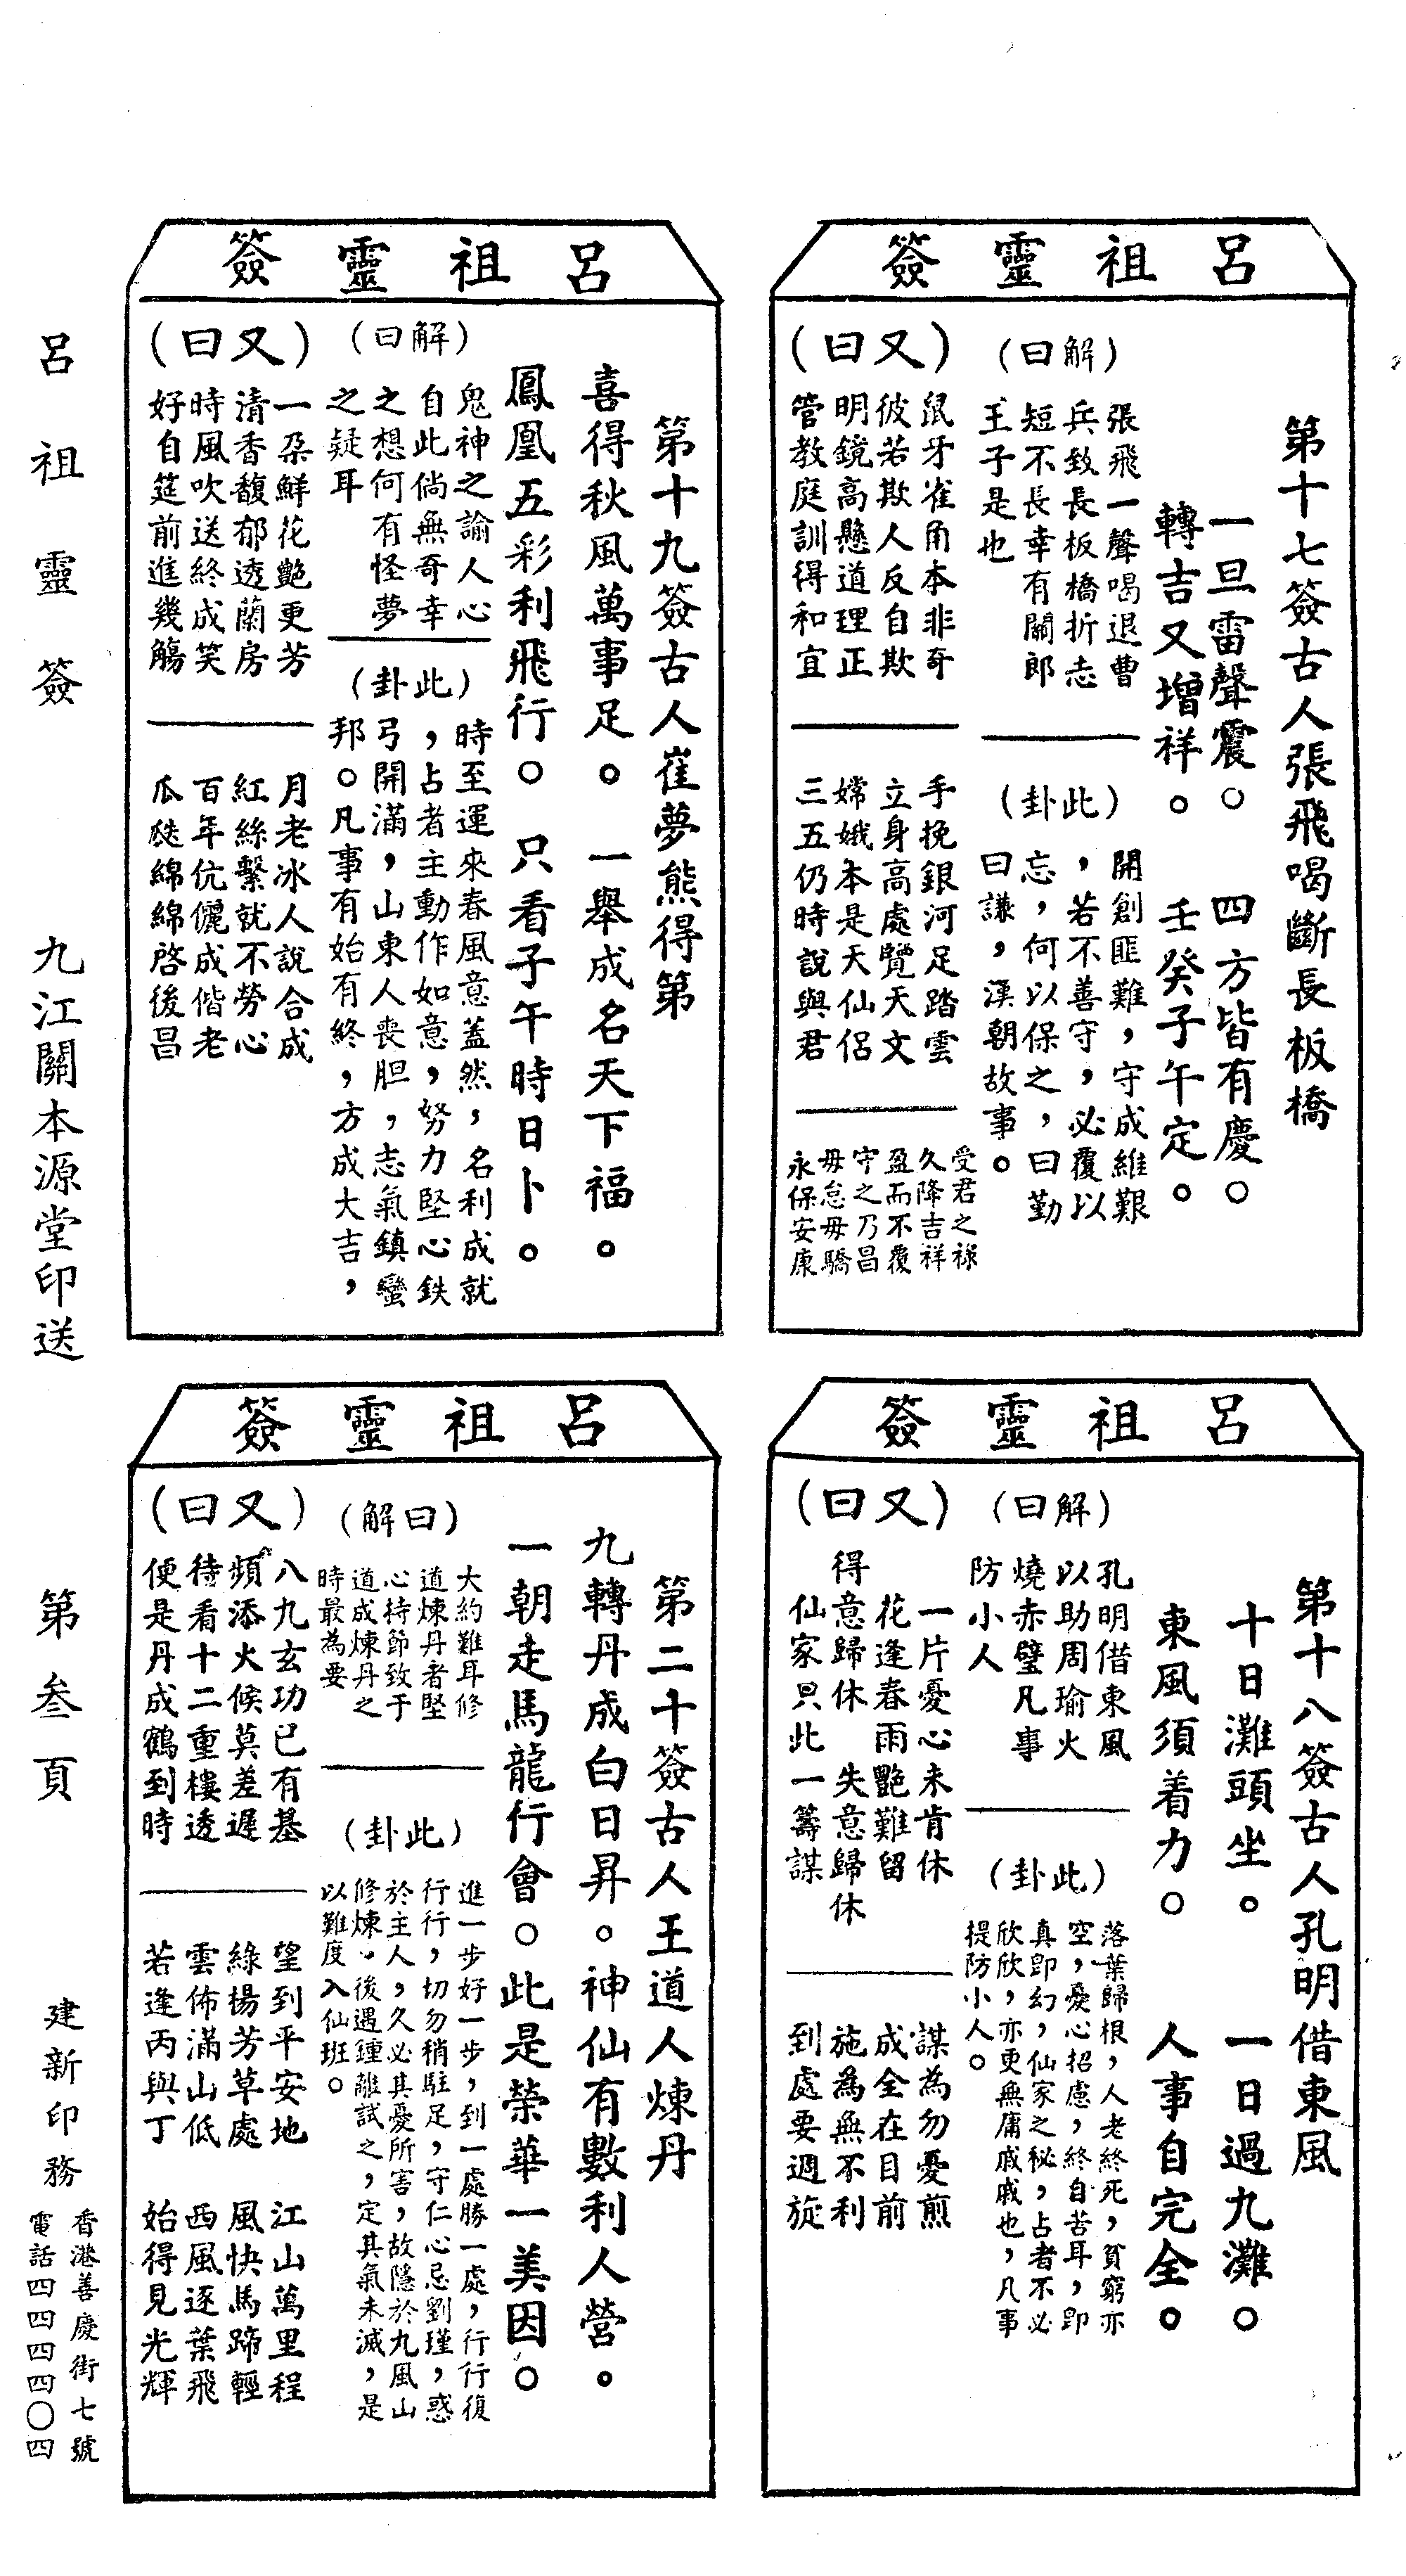 呂祖靈簽
第十七簽古人張飛喝斷長板橋
一旦雷聲震。　四方皆有慶。
轉吉又增祥。　壬癸子午定。
（解曰）
張飛一聲喝退曹
兵致長板橋折志
短不長幸有關郎
王子是也
（此卦）
開創匪難，守成維艱
，若不善守，必覆以
忘，何以保之，曰勤
曰謙，漢朝故事。
（又曰）
鼠牙雀角本非奇
彼若欺人反自欺
明鏡高懸道理正
管教庭訓得和宜
手挽銀河足踏雲
立身高處覽天文
嫦娥本是天仙侶
三五仍時說與君
受君之祿
久降吉祥
盈而不覆
守之乃昌
毋怠毋驕
永保安康
呂祖靈簽
第十八簽古人孔明借東風
十日灘頭坐。　一日過九灘。
東風須着力。　人事自完全。
（解曰）
孔明借東風
以助周瑜火
燒赤璧凡事
防小人
（此卦）
落葉歸根，人老終死，貧窮亦
空，憂心招慮，終自苦耳，即
真即幻，仙家之秘，占者不必
欣欣，亦更無庸戚戚也，凡事
提防小人。
（又曰）
一片憂心未肯休
花逢春雨艷難留
得意歸休　失意歸休
仙家只此一籌謀
謀為勿憂煎
成全在目前
施為無不利
到處要週旋
呂祖靈簽
第十九簽古人崔夢熊得第
喜得秋風萬事足。一舉成名天下福。
鳳凰五彩利飛行。只看子午時日卜。
（解曰）
鬼神之諭人心
自此倘無奇幸
之想何有怪夢
之疑耳
（此卦）
時至運來春風意蓋然，名利成就
，占者主動作如意，努力堅心鉄
弓開滿，山東人喪胆，志氣鎮蠻
邦。凡事有始有終，方成大吉，
（又曰）
一朶鮮花艷更芳
清香馥郁透蘭房
時風吹送終成笑
好自筵前進幾觴
月老冰人說合成
紅絲繫就不勞心
百年伉儷成偕老
瓜瓞綿綿啓後昌
呂祖靈簽
第二十簽古人王道人煉丹
九轉丹成白日昇。神仙有數利人營。
一朝走馬龍行會。此是榮華一美因。
（解曰）
大約難耳修
道煉丹者堅
心持節致于
道成煉丹之
時最為要
（此卦）
進一步好一步，到一處勝一處，行行復
行行，切勿稍駐足，守仁心忌劉瑾，惑
於主人，久必其憂所害，故隱於九風山
修煉。後遇鍾離試之，定其氣未滅，是
以難度入仙班。
（又曰）
八九玄功已有基
頻添火候莫差遲
待看十二重樓透
便是丹成鶴到時
望到平安地　江山萬里程
綠楊芳草處　風快馬蹄輕
雲佈滿山低　西風逐葉飛
若逢丙與丁　始得見光輝
呂祖靈簽　九江關本源堂印送　第叁頁　建新印務
香港善慶街七號
電話四四四四〇四